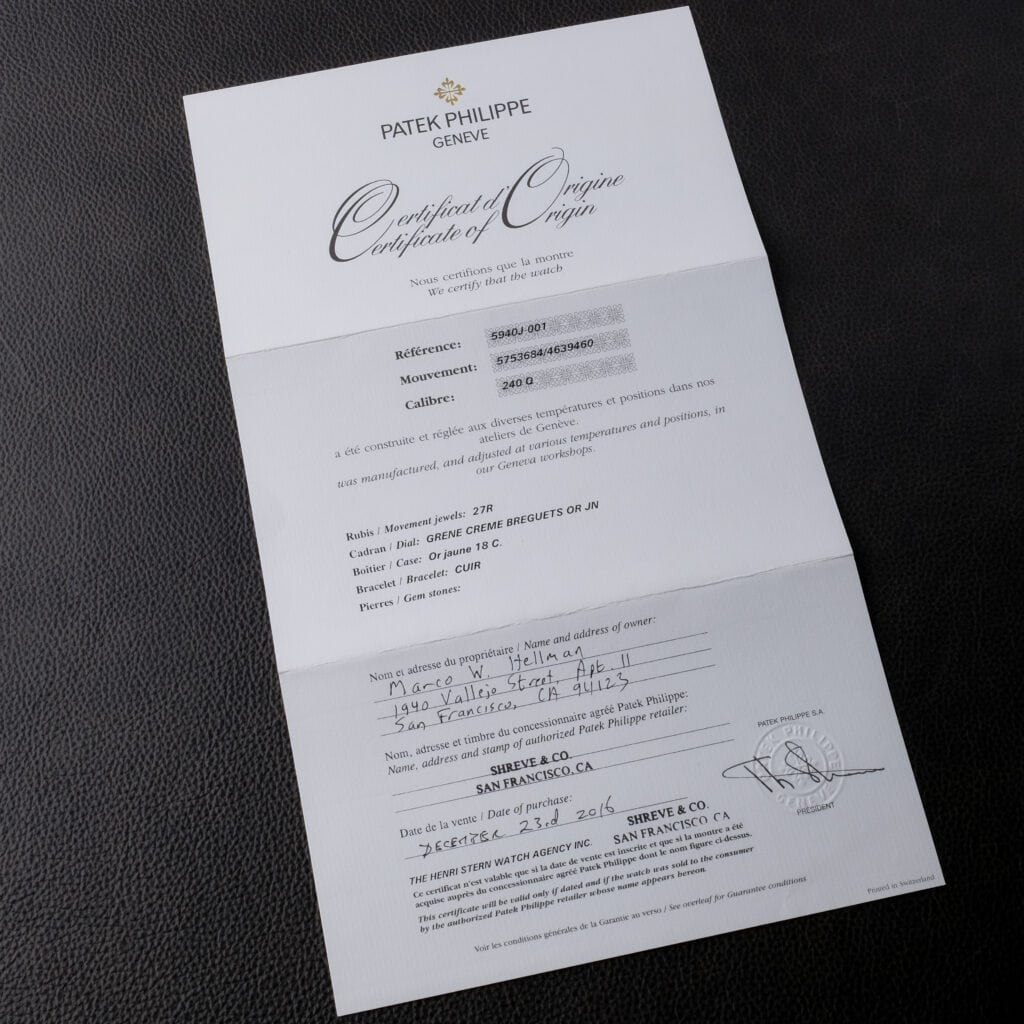 PATEK PHILIPPE
GENEVE
Certificat d'Origine
Certificate of Origin
Nous certifions que la montre
We certify that the watch
Référence: 5940J-001
Mouvement: 5753684/4639460
Calibre: 240 Q
a été construite et réglée aux diverses températures et positions dans nos
ateliers de Genève.
was manufactured, and adjusted at various temperatures and positions, in
our Geneva workshops.
Rubis / Movement jewels: 27R
Cadran / Dial: GRENE CREME BREGUETS OR JN
Boîtier / Case: Or jaune 18 C.
Bracelet / Bracelet: CUIR
Pierres / Gem stones:
Nom et adresse du propriétaire / Name and address of owner:
Marco W. Hellman
1940 Vallejo Street, Apt. 11
San Francisco, CA 94123
Nom, adresse et timbre du concessionnaire agréé Patek Philippe:
Name, address and stamp of authorized Patek Philippe retailer:
SHREVE & CO.
SAN FRANCISCO, CA
PATEK PHILIPPE S.A.
PATEK PHILIPPE
GENEVE
PRÉSIDENT
Date de la vente / Date of purchase:
DECEMBER 23rd 2016
SHREVE & CO.
SAN FRANCISCO, CA
THE HENRI STERN WATCH AGENCY INC.
Ce certificat n'est valable que si la date de vente est inscrite et que si la montre a été
acquise auprès du concessionnaire agréé Patek Philippe dont le nom figure ci-dessus.
This certificate will be valid only if dated and if the watch was sold to the consumer
by the authorized Patek Philippe retailer whose name appears hereon.
Voir les conditions générales de la Garantie au verso / See overleaf for Guarantee conditions
Printed in Switzerland